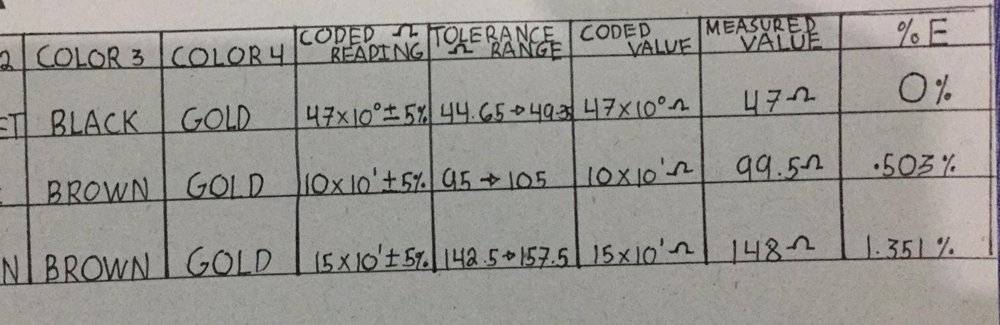 2 COLOR 3 COLOR 4 CODED Ω READING TOLERANCE Ω RANGE CODED VALUE MEASURED VALUE % E
ET BLACK GOLD 47×10⁰±5% 44.65→49.35 47×10⁰Ω 47Ω 0%
BROWN GOLD 10×10¹±5% 95→105 10×10¹Ω 99.5Ω .503%
N BROWN GOLD 15×10¹±5% 142.5→157.5 15×10¹Ω 148Ω 1.351%